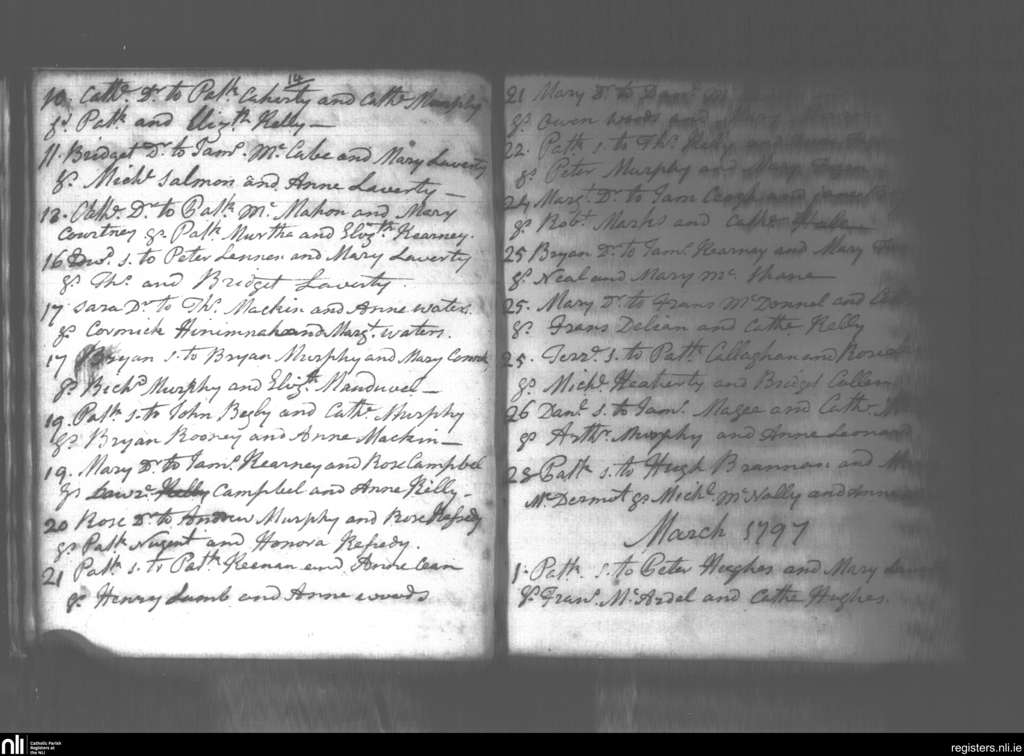 14
10. Cathe. Dr. to Patk. Caherty and Cathe. Murphy
gs. Patk. and Elizth. Kelly —
11. Bridget Dr. to Jams. Mc. Cabe and Mary Laverty
gs. Michl. Salmon and Anne Laverty —
13. Cathe. Dr. to Patk. Mc. Mahon and Mary
Courtney gs. Patk. Murtha and Elizth. Kearney.
16 s. to Peter Lennen and Mary Laverty
gs. Ths. and Bridget Laverty.
17 Sara Dr. to Ths. Mackin and Anne Waters.
gs. Cormick and Margt. Waters.
17 Bryan s. to Bryan Murphy and Mary
gs. Murphy and Elizth.
19. Patk. s. to John Begly and Cathe. Murphy
gs. Bryan Rooney and Anne Mackin —
19. Mary Dr. to Jams. Kearney and Rose Campbel
gs. Lawre. Kelly Campbel and Anne Kelly —
20 Rose Dr. to Andrew Murphy and Rose Kafredy
gs. Patk. Nugent and Honora Kafredy.
21 Patk. s. to Patk. Keenan and Anne
gs. Henry Lamb and Anne Woods
21 Mary Dr. to
gs. Owen Woods and Mary
22. Patk. s. to Ths. Kelly and
gs. Peter Murphy and Mary
24 Margt. Dr. to Jam and
gs. Robt. Marks and Cathe.
25 Bryan Dr. to Jams. Kearney and Mary
gs. Neal and Mary Mc. Shane —
25. Mary Dr. to Frans Mc. Donnel and
gs. Frans and Cathe. Kelly
25. Terre. s. to Patk. Callaghan and Rose
gs. Michl. Heatherty and Bridget
26 Danl. s. to Jams. Magee and Cathe.
gs. Arthr. Murphy and Anne Leonard
28 Patk. s. to Hugh Brannan and
Mc. Dermot gs. Michl. Mc. Nally and Anne
March 1797
1. Patk. s. to Peter Hughes and Mary
gs. Frans. Mc. Ardel and Cathe Hughes.
nli
Catholic Parish
Registers at
the NLI
registers.nli.ie